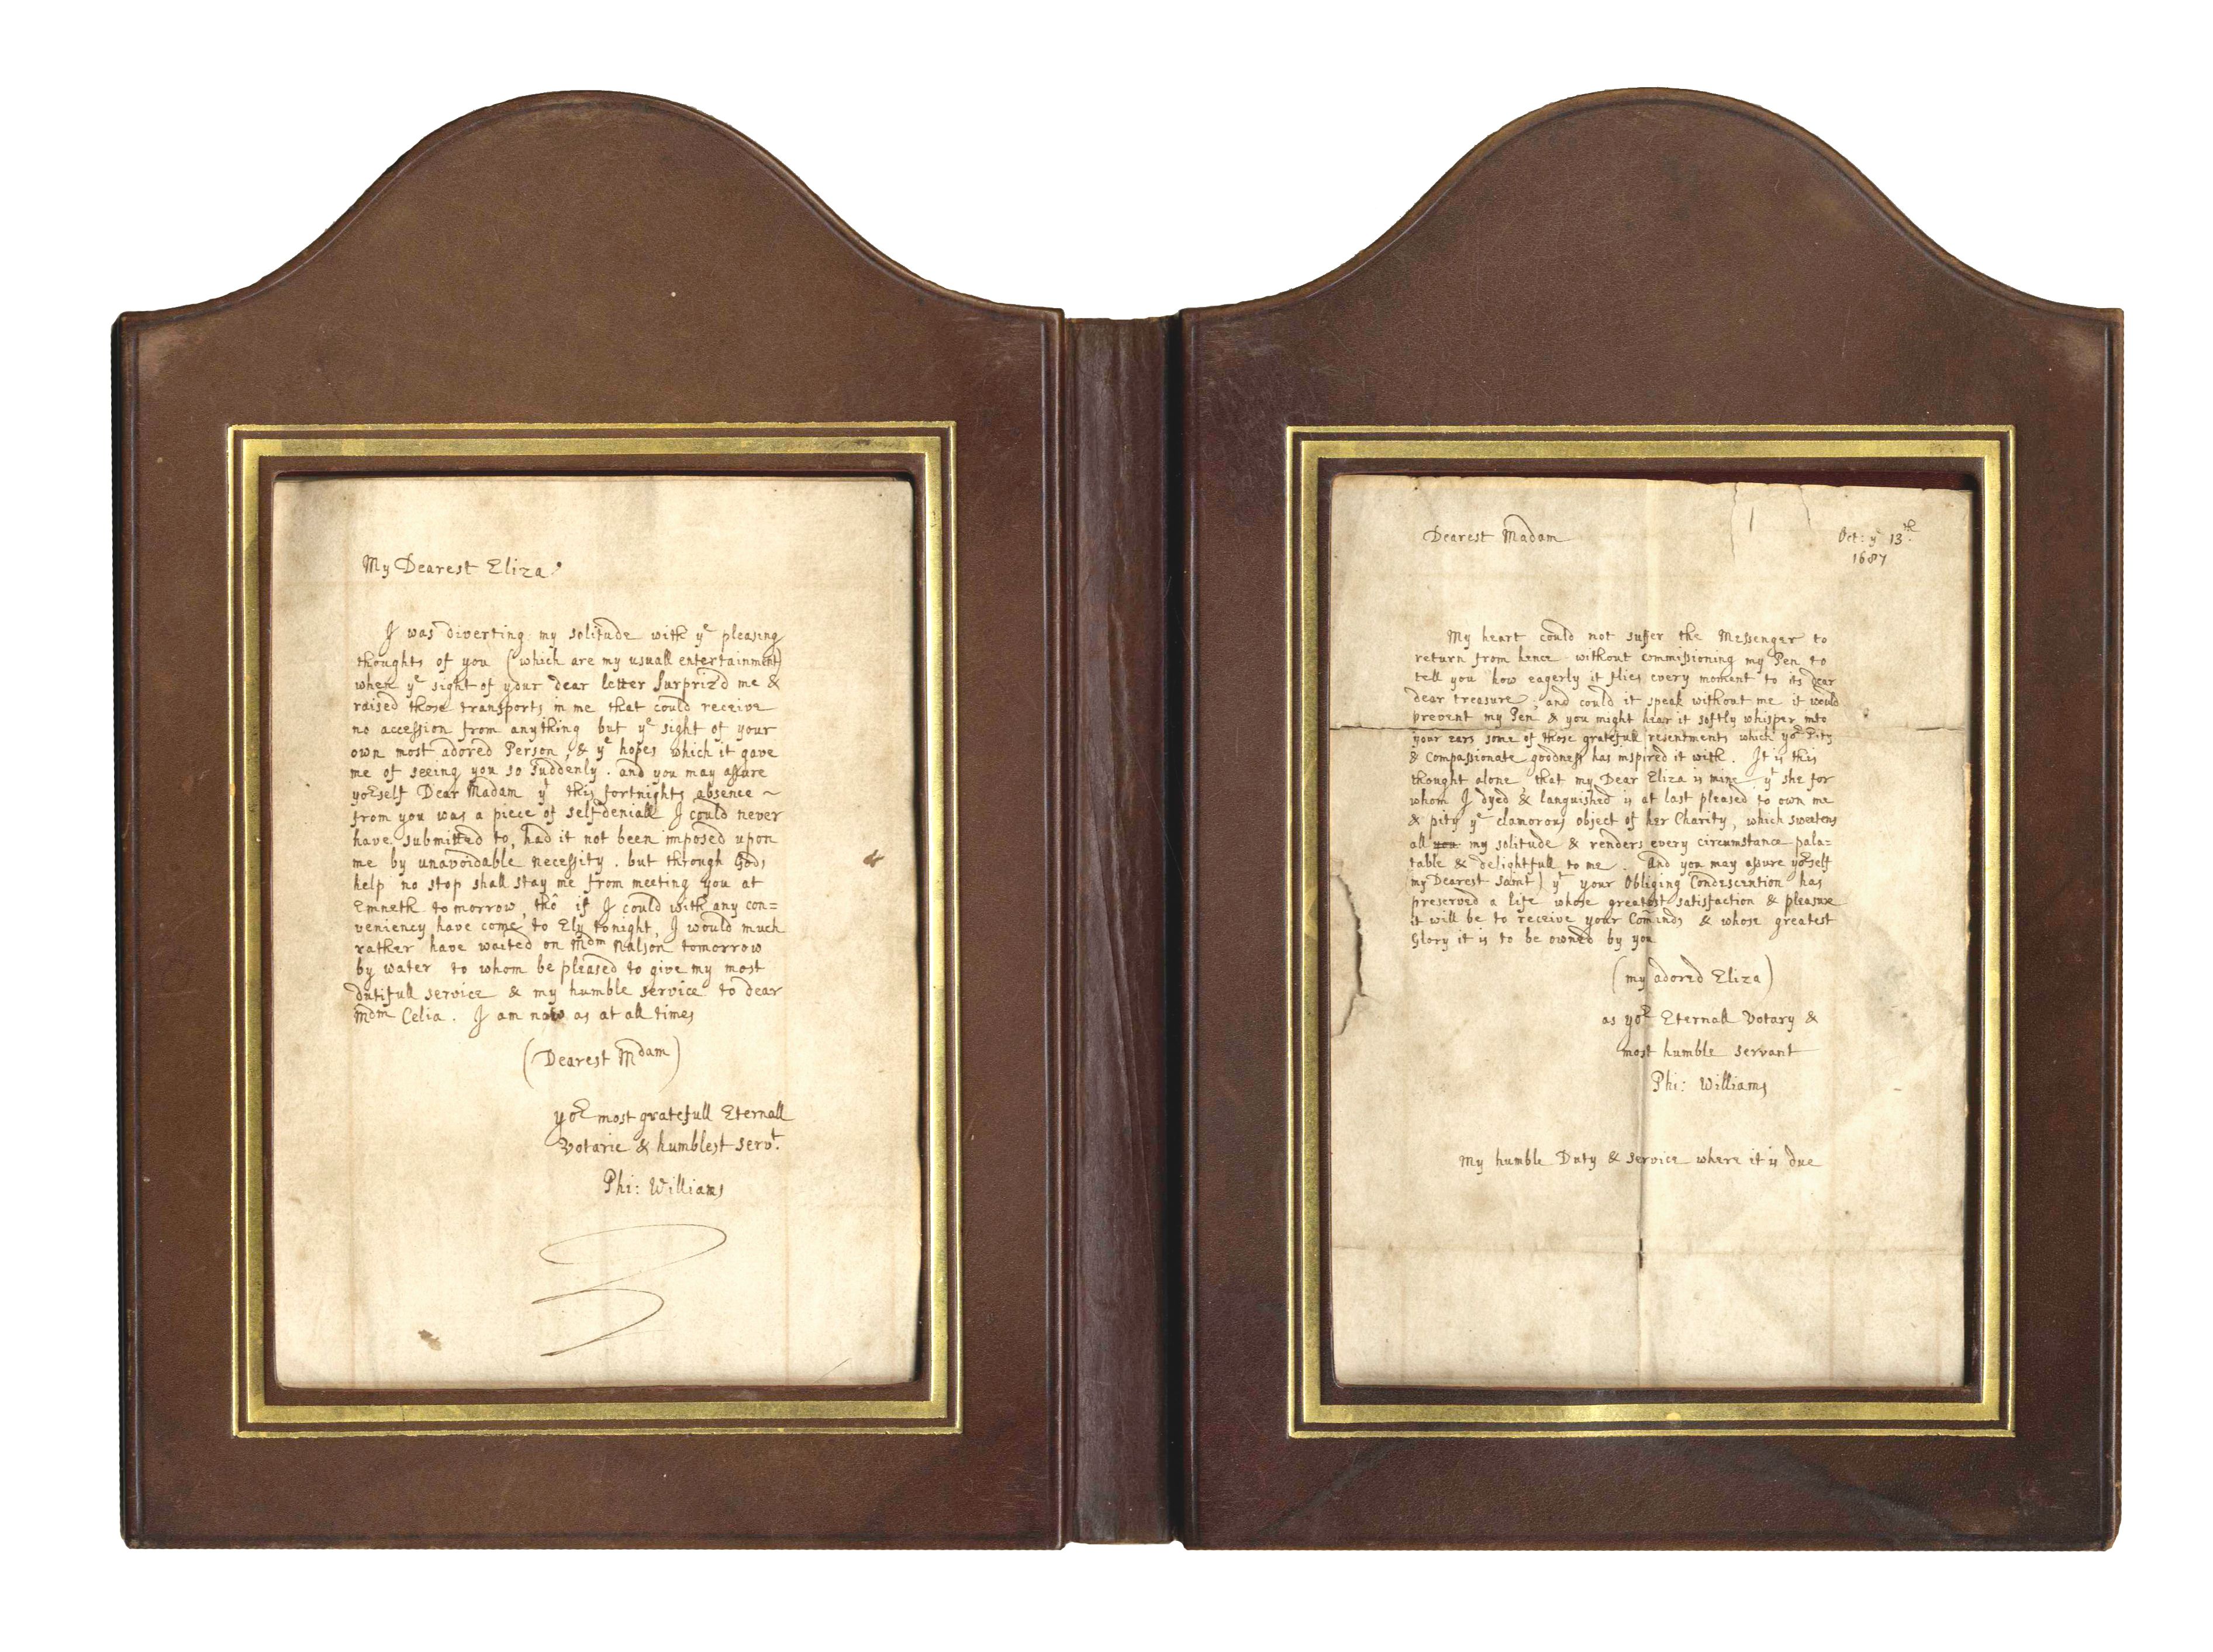 My Dearest Eliza
I was diverting my solitude with yᵉ pleasing
thoughts of you (which are my usuall entertainment)
when yᵉ sight of your dear letter surpriz'd me &
raised those transports in me that could receive
no accession from anything but yᵉ sight of your
own most adored Person, & yᵉ hopes which it gave
me of seeing you so suddenly. and you may assure
yoʳself Dear Madam yᵗ this fortnights absence ~
from you was a piece of selfdeniall I could never
have submitted to, had it not been imposed upon
me by unavoidable necessity. but through Gods
help no stop shall stay me from meeting you at
Emneth tomorrow, thô if I could with any con=
veniency have come to Ely tonight, I would much
rather have waited on Mᵈᵐ Nalson tomorrow
by water to whom be pleased to give my most
dutifull service & my humble service to dear
Mᵈᵐ Celia. I am now as at all times
(Dearest Mᵈᵃᵐ)
yoʳ most gratefull Eternall
Votarie & humblest servᵗ.
Phi: Williams
Dearest Madam
Oct: yᵉ 13ᵗʰ.
1687
My heart could not suffer the Messenger to
return from hence without commissioning my Pen to
tell you how eagerly it flies every moment to its dear
dear treasure, and could it speak without me it would
prevent my Pen & you might hear it softly whisper into
your ears some of those gratefull resentments which yoʳ Pity
& Compassionate goodness has inspired it with. It is this
thought alone that my Dear Eliza is mine yᵗ she for
whom I dyed & languished is at last pleased to own me
& pity yᵉ clamorous object of her Charity, which sweetens
all my solitude & renders every circumstance pala=
table & delightfull to me. And you may assure yoʳself
(my Dearest Saint) yᵗ your Obliging Condescention has
preserved a life whose greatest satisfaction & pleasure
it will be to receive your Comands & whose greatest
Glory it is to be owned by you
(my adored Eliza)
as yoʳ Eternall Votary &
most humble servant
Phi: Williams
My humble Duty & service where it is due